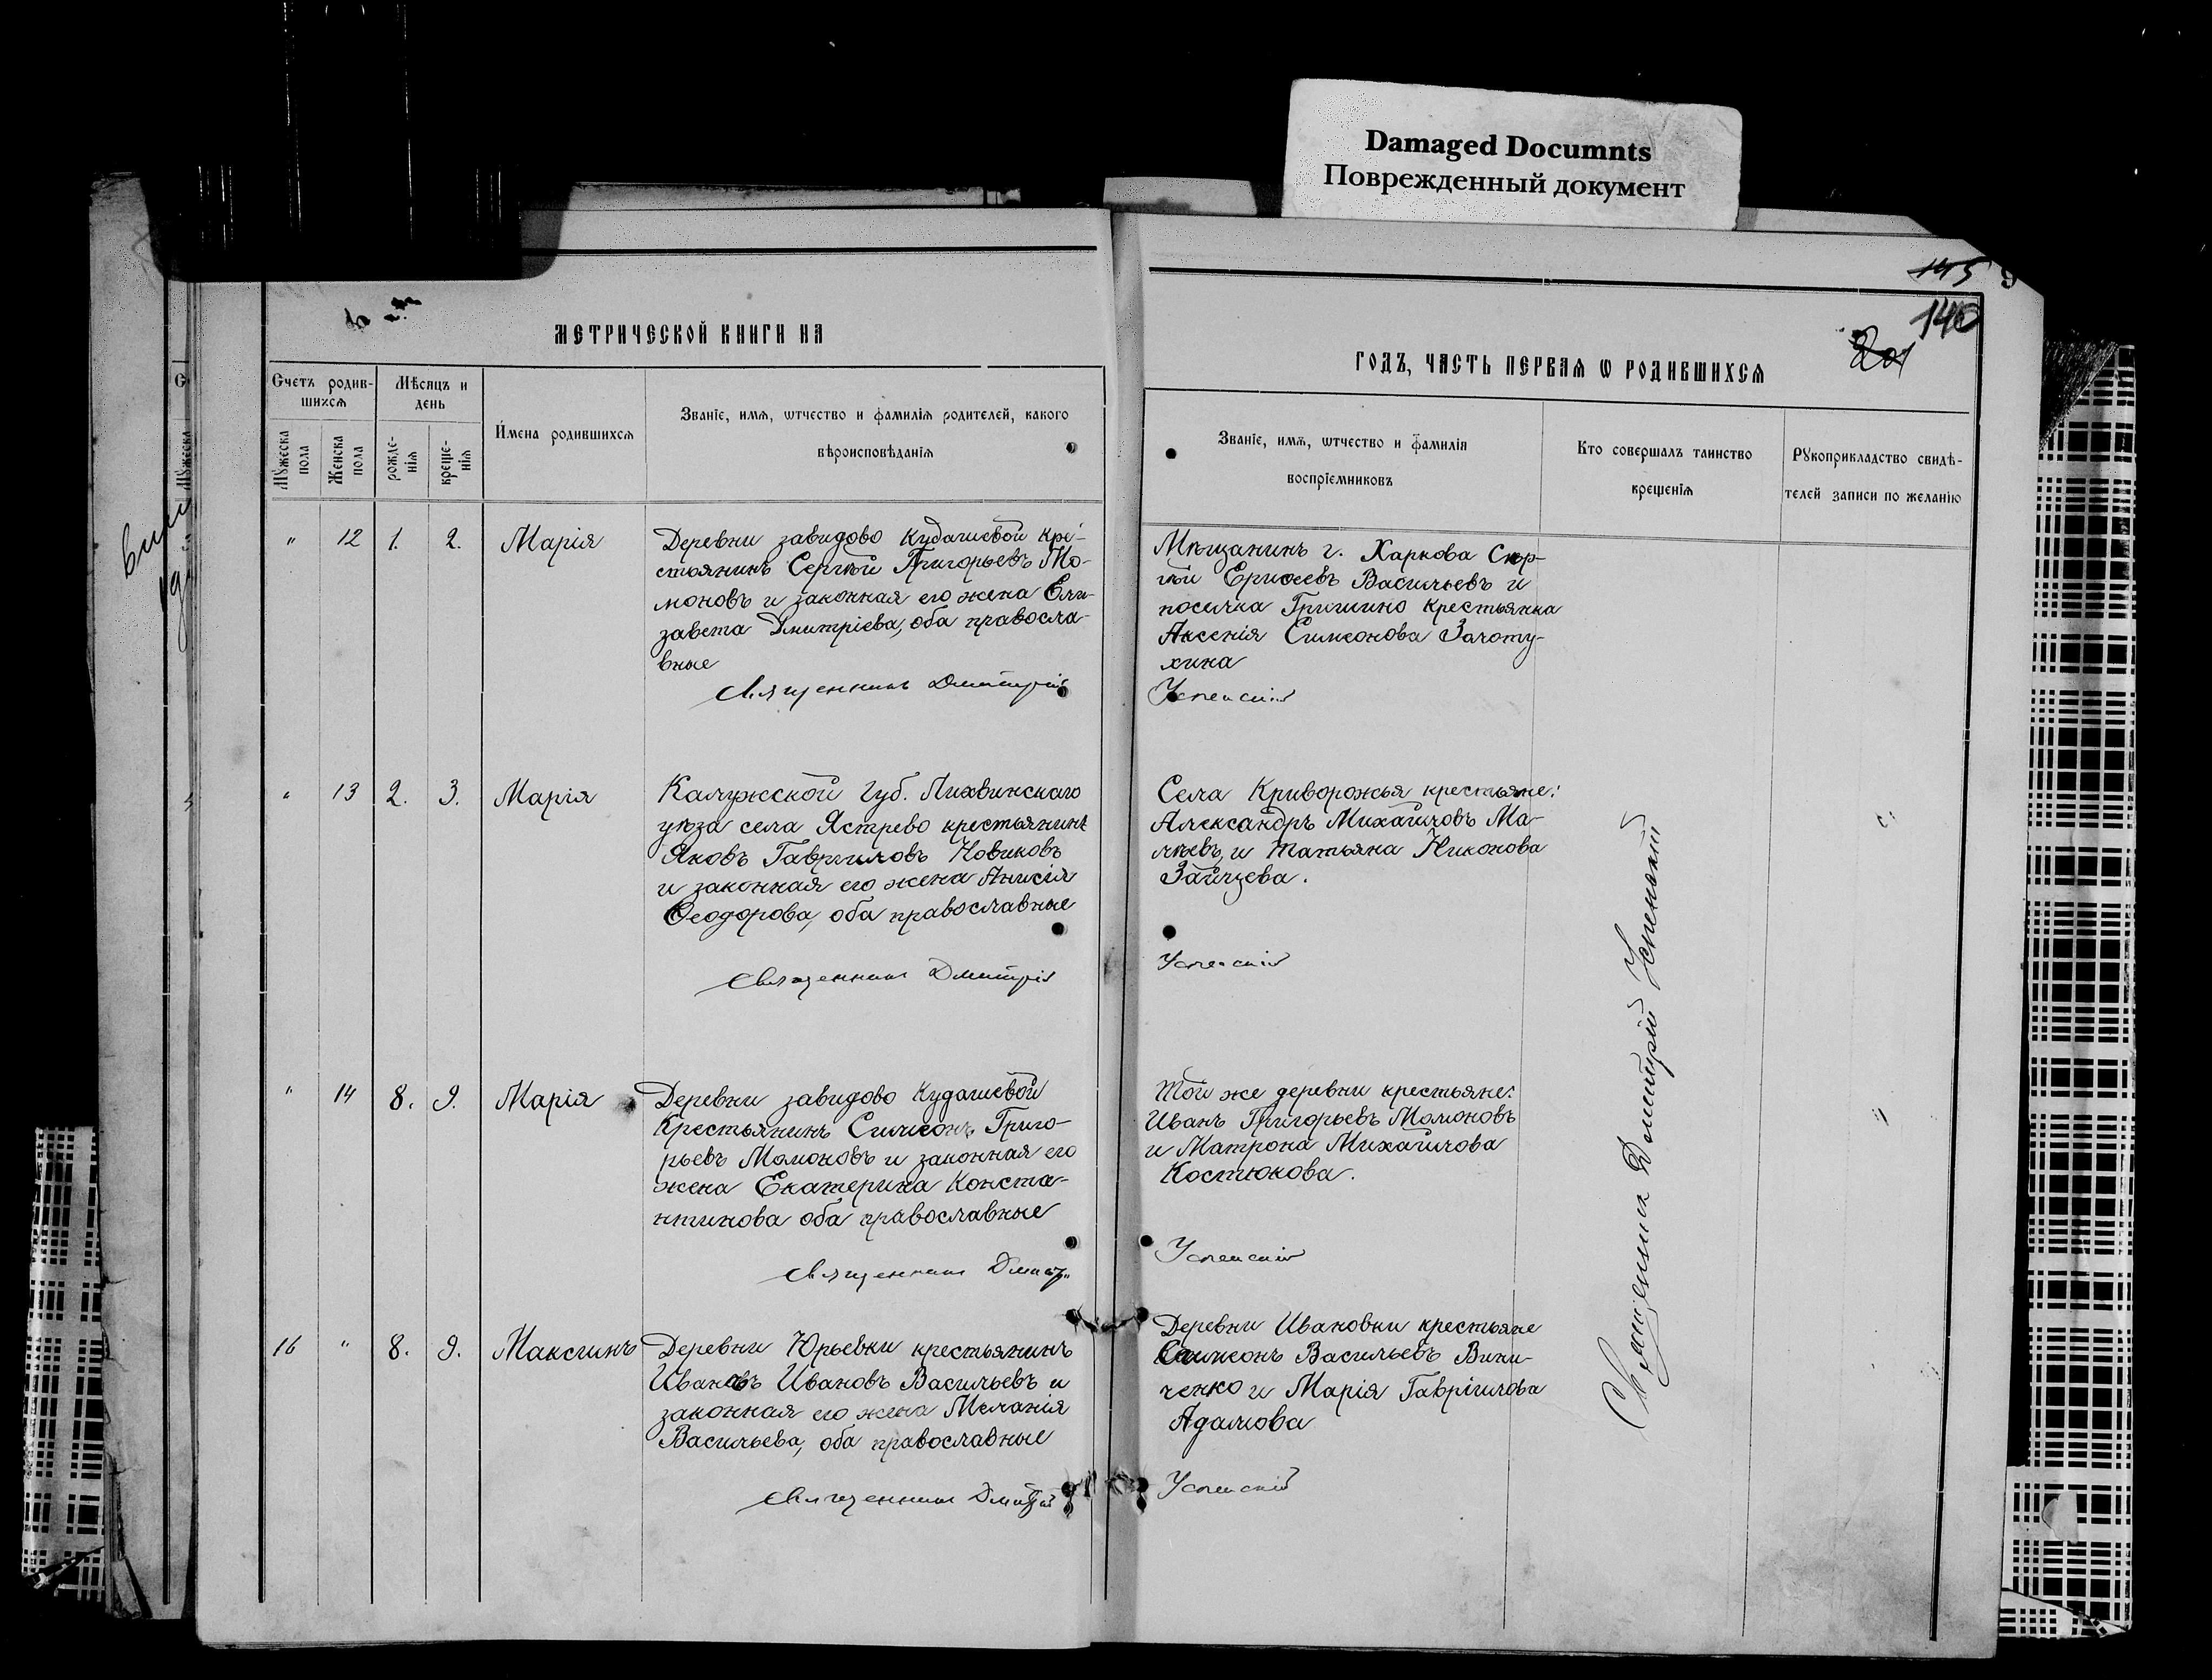 Damaged Documnts
Поврежденный документ
145
140
201
МЕТРИЧЕСКОЙ КНИГИ НА
ГОДЪ, ЧАСТЬ ПЕРВАѦ Ѡ РОДИВШИХСѦ
Счетъ родив-
шихсѧ
Мѣсяцъ и
день
Мꙋжеска
пола
Женска
пола
рожде-
нія
креще-
нія
Имена родившихсѧ
Званіе, имѧ, ѿтчество и фамилія родителей, какого
вѣроисповѣданіѧ
Званіе, имѧ, ѿтчество и фамилія
воспріємниковъ
Кто совершалъ таинство
крещеніѧ
Рꙋкоприкладство свидѣ-
телей записи по желанію
" 12 1. 2. Марія
Деревни завидово Кудашевой Кре-
стьянинъ Сергѣй Григорьевъ Мо-
моновъ и законная его жена Ели-
завета Дмитріева, оба правосла-
вные
Священникъ Дмитрій
Мѣщанинъ г. Харкова Сер-
гѣй Васильевъ и
поселка Гришино крестьянка
Аксенія Симеонова Золоту-
хина
Успенскій
" 13 2. 3. Марія
Калужской Губ. Лихвинскаго
уѣзда села Ястрево крестьянинъ
Яковъ Гавриловъ Новиковъ
и законная его жена Анисія
Ѳеодорова, оба православные
Священникъ Дмитрій
Села Криворожья крестьяне:
Александръ Михайловъ Ма-
лѣевъ, и Татьяна Никонова
Зайцева.
Успенскій
" 14 8. 9. Марія
Деревни завидово Кудашевой
Крестьянинъ Симеонъ Григо-
рьевъ Момоновъ и законная его
жена Екатерина Конста-
нтинова оба православные
Священникъ Дмитрій
Той же деревни крестьяне:
Иванъ Григорьевъ Момоновъ
и Матрона Михайлова
Костюкова.
Успенскій
16 " 8. 9. Максимъ
Деревни Юрьевки крестьянинъ
Ивановъ Ивановъ Васильевъ и
законная его жена Меланія
Васильева, оба православные
Священникъ Дмитрій
Деревни Ивановки крестьяне
Симеонъ Васильевъ Вини-
ченко и Марія Гавріилова
Адамова
Успенскій
Священникъ Дмитрій Успенскій